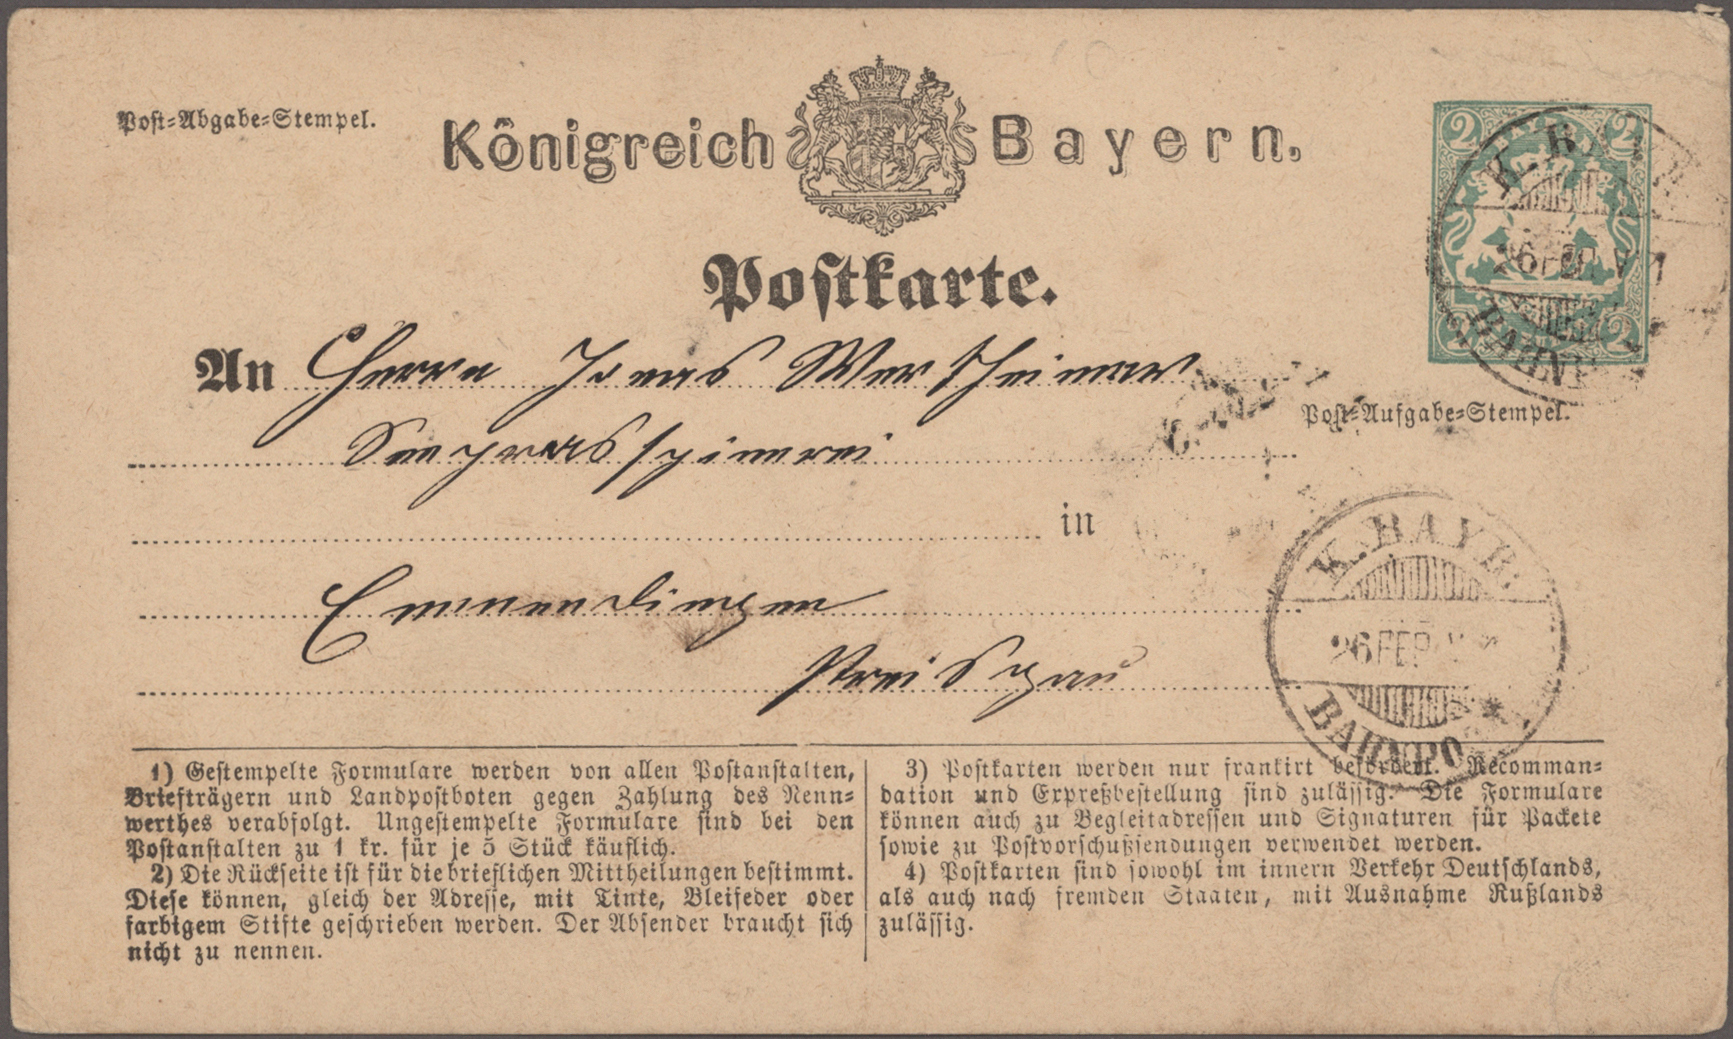 Post-Abgabe-Stempel.
Königreich Bayern.
Postkarte.
2 2
2 2
K. BAYR.
26 FEB
BAHNP
An Herrn Jonas Wertheimer
Post-Aufgabe-Stempel.
Seegrasspinnerei
in
Emmendingen
Breisgau
K. BAYR.
26 FEB
BAHNPO
1) Gestempelte Formulare werden von allen Postanstalten,
Briefträgern und Landpostboten gegen Zahlung des Nenn-
werthes verabfolgt. Ungestempelte Formulare sind bei den
Postanstalten zu 1 kr. für je 5 Stück käuflich.
2) Die Rückseite ist für die brieflichen Mittheilungen bestimmt.
Diese können, gleich der Adresse, mit Tinte, Bleifeder oder
farbigem Stifte geschrieben werden. Der Absender braucht sich
nicht zu nennen.
3) Postkarten werden nur frankirt befördert. Recomman-
dation und Expreßbestellung sind zulässig. Die Formulare
können auch zu Begleitadressen und Signaturen für Packete
sowie zu Postvorschußsendungen verwendet werden.
4) Postkarten sind sowohl im innern Verkehr Deutschlands,
als auch nach fremden Staaten, mit Ausnahme Rußlands
zulässig.